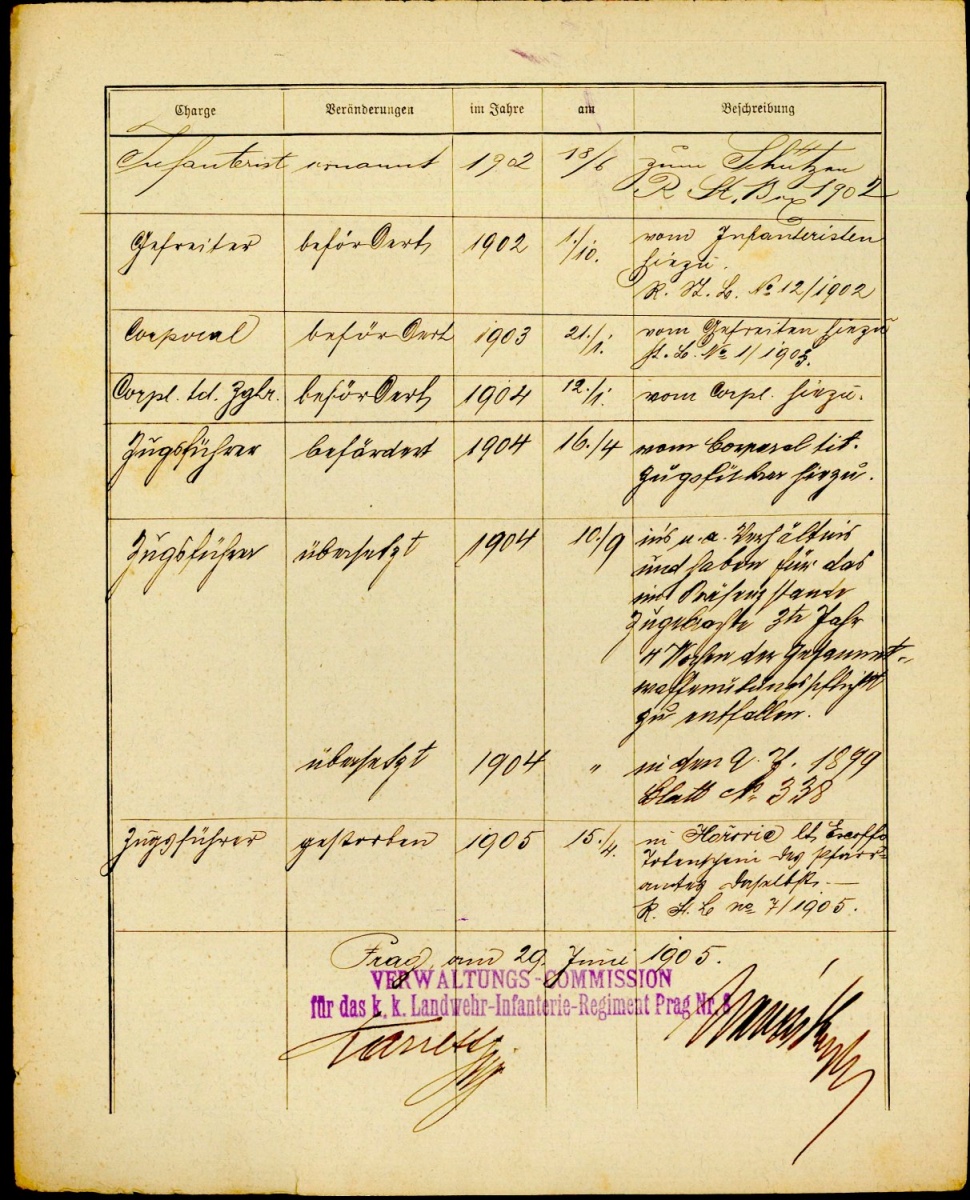 Charge Veränderungen im Jahre am Beschreibung
Infanterist ernannt 1902 18/6 zum Schützen
R. St. B. 1902
Gefreiter befördert 1902 1./10. vom Infanteristen
hiezu.
R. St. B. No 12/1902
Corporal befördert 1903 21./1. vom Gefreiten hiezu
St. B. No 1/1903.
Corpl. td. Zgfr. befördert 1904 12./1. vom Corpl. hiezu.
Zugsführer befördert 1904 16./4 vom Corporal tit.
Zugsführer hiezu.
Zugsführer übersetzt 1904 10./9 in's u. a. Verhältnis
und haben für das
im Präsenzstande
Zugebrachte 3te Jahr
4 Wochen der Gesammt-
waffenübungspflicht
zu entfallen.
übersetzt 1904 " in den A. J. 1899
Blatt No 338
Zugsführer gestorben 1905 15./4. in lt.
Totenschein des Pfarr-
amtes daselbst. —
R. St. B No 7/1905.
Prag, am 29. Juni 1905.
VERWALTUNGS-COMMISSION
für das k. k. Landwehr-Infanterie-Regiment Prag Nr. 8